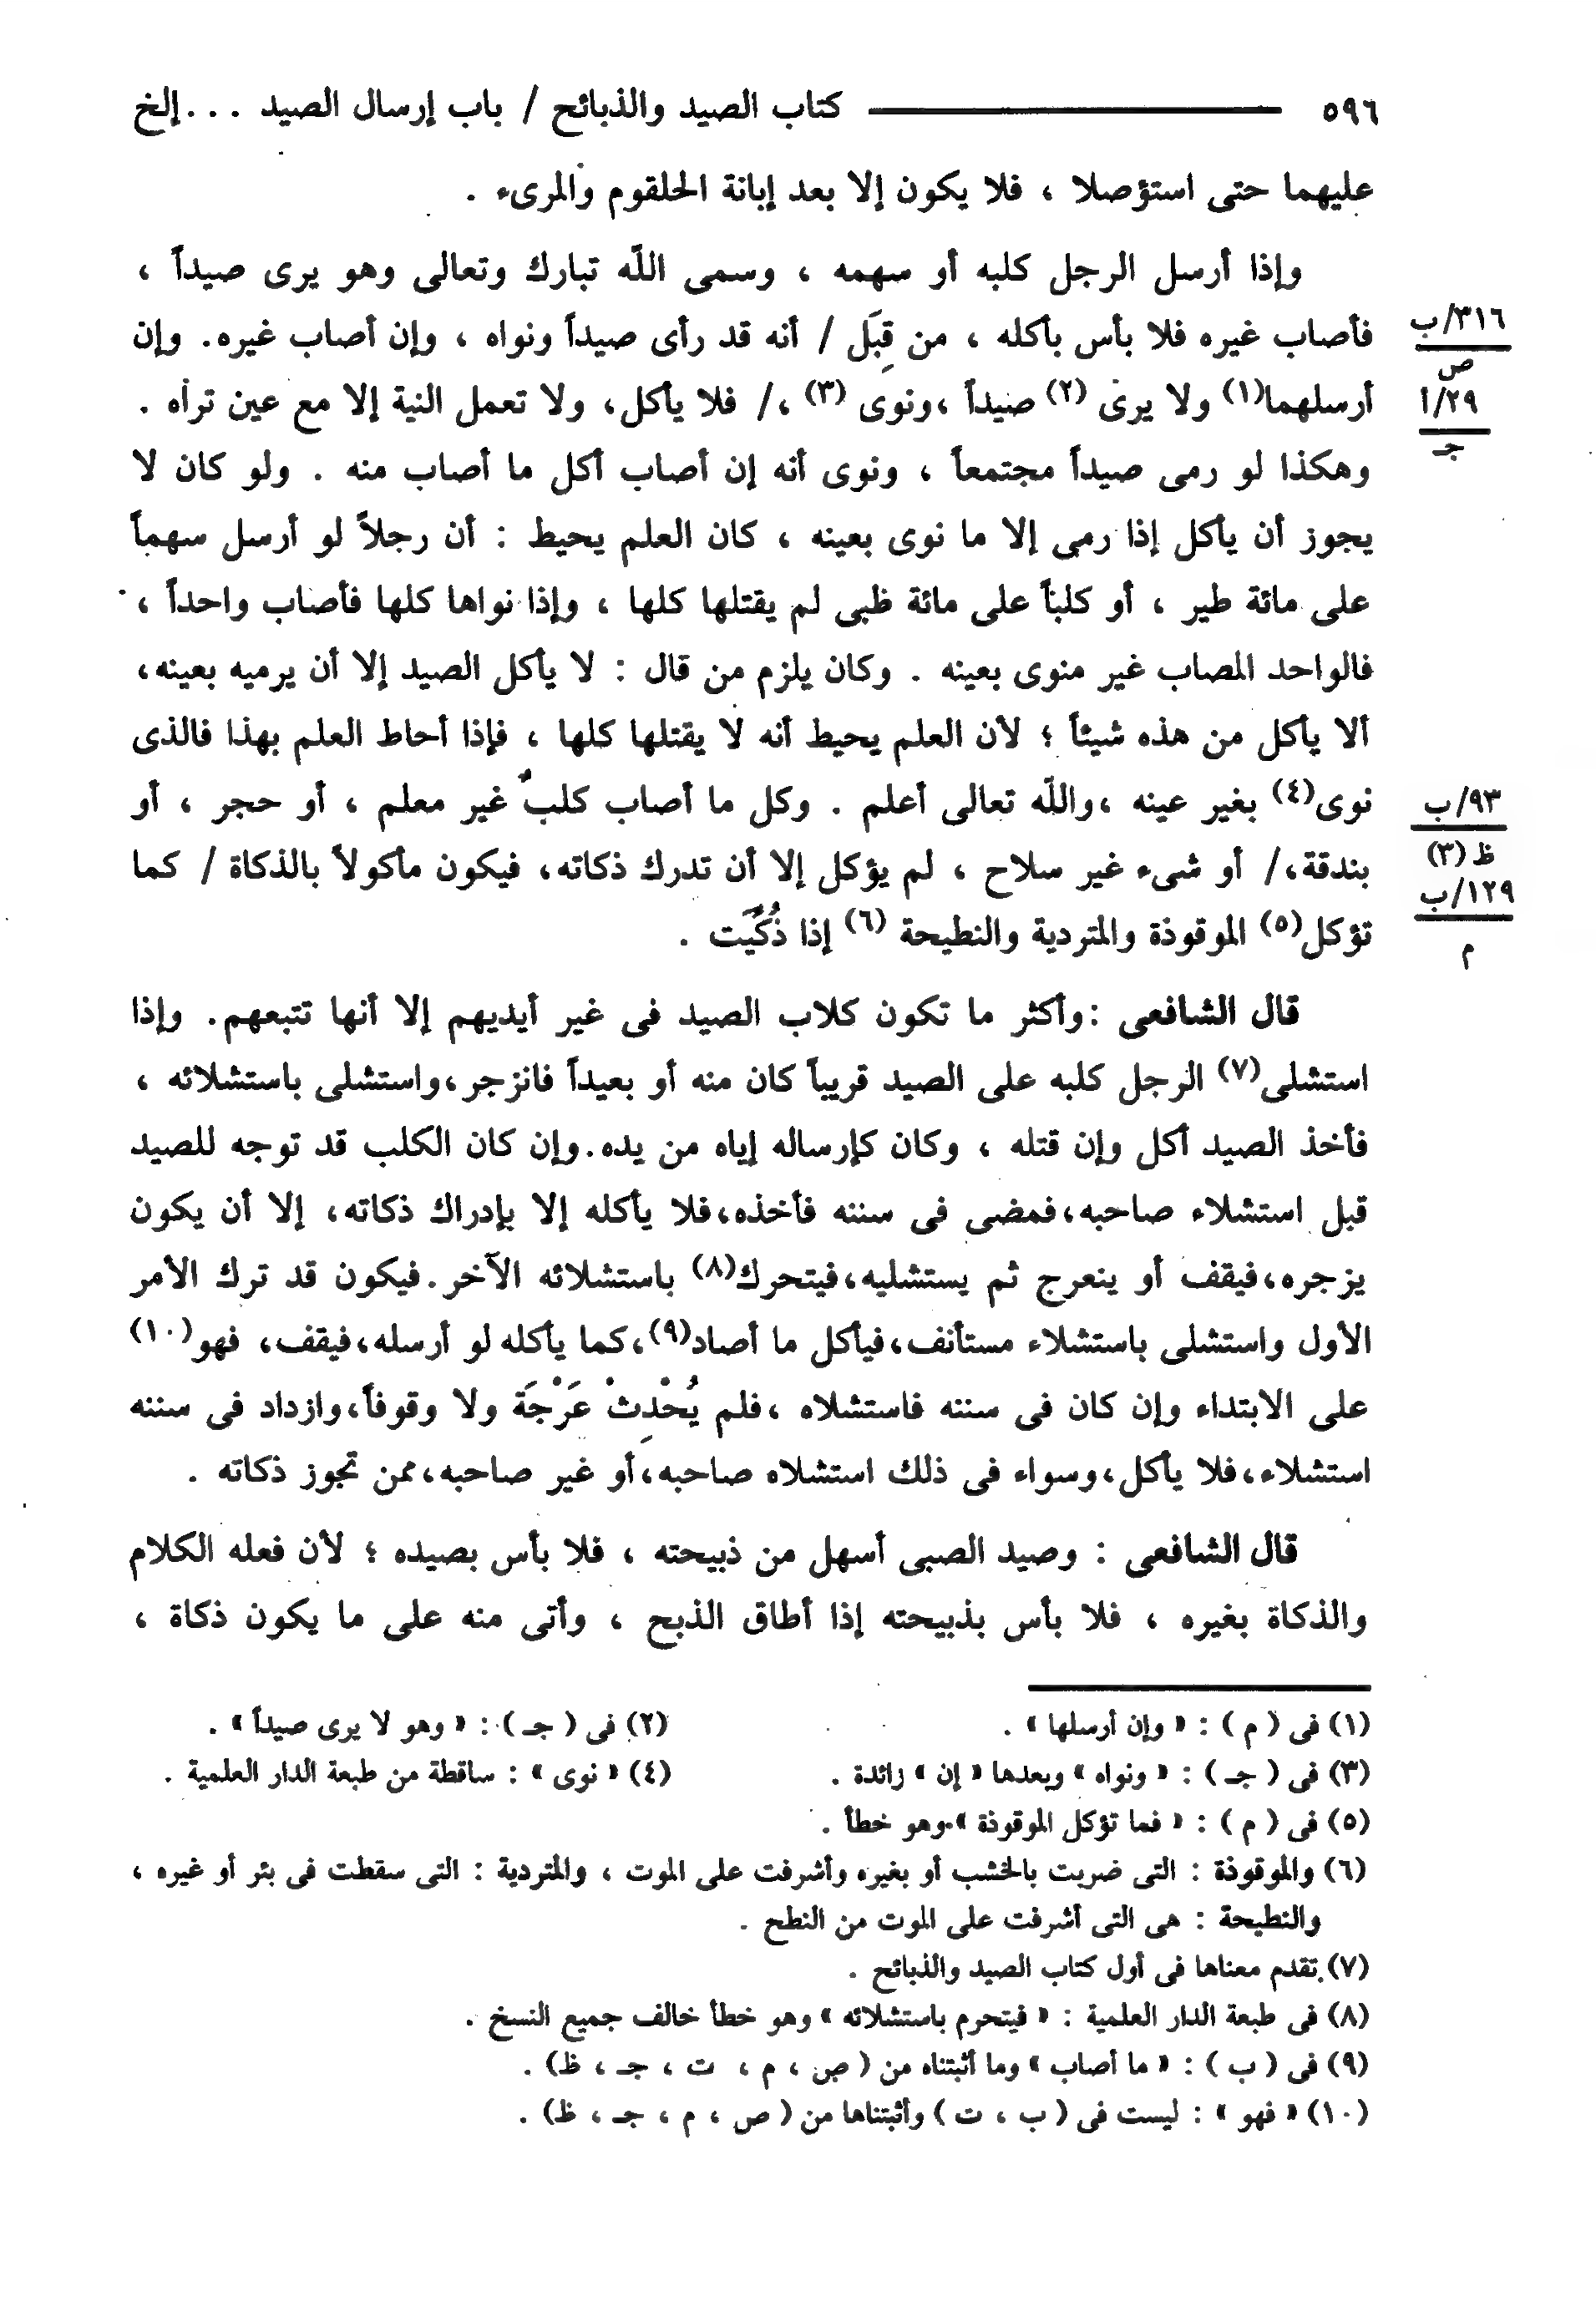 ٥٩٦ ــــــــــــ كتاب الصيد والذبائح / باب إرسال الصيد . . . إلخ
عليهما حتى استؤصلا ، فلا يكون إلا بعد إبانة الحلقوم والمرىء .
وإذا أرسل الرجل كلبه أو سهمه ، وسمى اللّه تبارك وتعالى وهو يرى صيداً ،
فأصاب غيره فلا بأس بأكله ، من قِبَل / أنه قد رأى صيداً ونواه ، وإن أصاب غيره. وإن
٣١٦/ب
ص
أرسلهما(١) ولا يرى (٢) صيداً ،ونوى (٣) ،/ فلا يأكل، ولا تعمل النية إلا مع عين تراه .
٢٩/أ
جـ
وهكذا لو رمى صيداً مجتمعاً ، ونوى أنه إن أصاب أكل ما أصاب منه . ولو كان لا
يجوز أن يأكل إذا رمى إلا ما نوى بعينه ، كان العلم يحيط : أن رجلاً لو أرسل سهماً
على مائة طير ، أو كلباً على مائة ظبى لم يقتلها كلها ، وإذا نواها كلها فأصاب واحداً ،
فالواحد المصاب غير منوى بعينه . وكان يلزم من قال : لا يأكل الصيد إلا أن يرميه بعينه،
ألا يأكل من هذه شيئاً ؛ لأن العلم يحيط أنه لا يقتلها كلها ، فإذا أحاط العلم بهذا فالذى
نوى(٤) بغير عينه ،واللّه تعالى أعلم . وكل ما أصاب كلبٌ غير معلم ، أو حجر ، أو
٩٣/ب
ظ (٣)
بندقة،/ أو شىء غير سلاح ، لم يؤكل إلا أن تدرك ذكاته، فيكون مأكولاً بالذكاة / كما
١٢٩/ب
م
تؤكل(٥) الموقوذة والمتردية والنطيحة (٦) إذا ذُكِّيَت .
قال الشافعى :وأكثر ما تكون كلاب الصيد فى غير أيديهم إلا أنها تتبعهم. وإذا
استشلى(٧) الرجل كلبه على الصيد قريباً كان منه أو بعيداً فانزجر،واستشلى باستشلائه ،
فأخذ الصيد أكل وإن قتله ، وكان كإرساله إياه من يده.وإن كان الكلب قد توجه للصيد
قبل استشلاء صاحبه،فمضى فى سننه فأخذه،فلا يأكله إلا بإدراك ذكاته، إلا أن يكون
يزجره،فيقف أو ينعرج ثم يستشليه،فيتحرك(٨) باستشلائه الآخر.فيكون قد ترك الأمر
الأول واستشلى باستشلاء مستأنف،فيأكل ما أصاد(٩)،كما يأكله لو أرسله،فيقف، فهو(١٠)
على الابتداء وإن كان فى سننه فاستشلاه ،فلم يُحْدِثْ عَرْجَة ولا وقوفاً،وازداد فى سننه
استشلاء،فلا يأكل،وسواء فى ذلك استشلاه صاحبه،أو غير صاحبه،ممن تجوز ذكاته .
قال الشافعى : وصيد الصبى أسهل من ذبيحته ، فلا بأس بصيده ؛ لأن فعله الكلام
والذكاة بغيره ، فلا بأس بذبيحته إذا أطاق الذبح ، وأتى منه على ما يكون ذكاة ،
(١) فى ( م ) : « وإن أرسلها » .
(٢) فى ( جـ ) : « وهو لا يرى صيداً » .
(٣) فى ( جـ ) : « ونواه » وبعدها « إن » زائدة .
(٤) « نوى » : ساقطة من طبعة الدار العلمية .
(٥) فى ( م ) : « فما تؤكل الموقوذة » وهو خطأ .
(٦) والموقوذة : التى ضربت بالخشب أو بغيره وأشرفت على الموت ، والمتردية : التى سقطت فى بئر أو غيره ،
والنطيحة : هى التى أشرفت على الموت من النطح .
(٧) تقدم معناها فى أول كتاب الصيد والذبائح .
(٨) فى طبعة الدار العلمية : « فيتحرم باستشلائه » وهو خطأ خالف جميع النسخ .
(٩) فى ( ب ) : « ما أصاب » وما أثبتناه من ( ص ، م ، ت ، جـ ، ظ) .
(١٠) « فهو » : ليست فى ( ب ، ت ) وأثبتناها من ( ص ، م ، جـ ، ظ) .